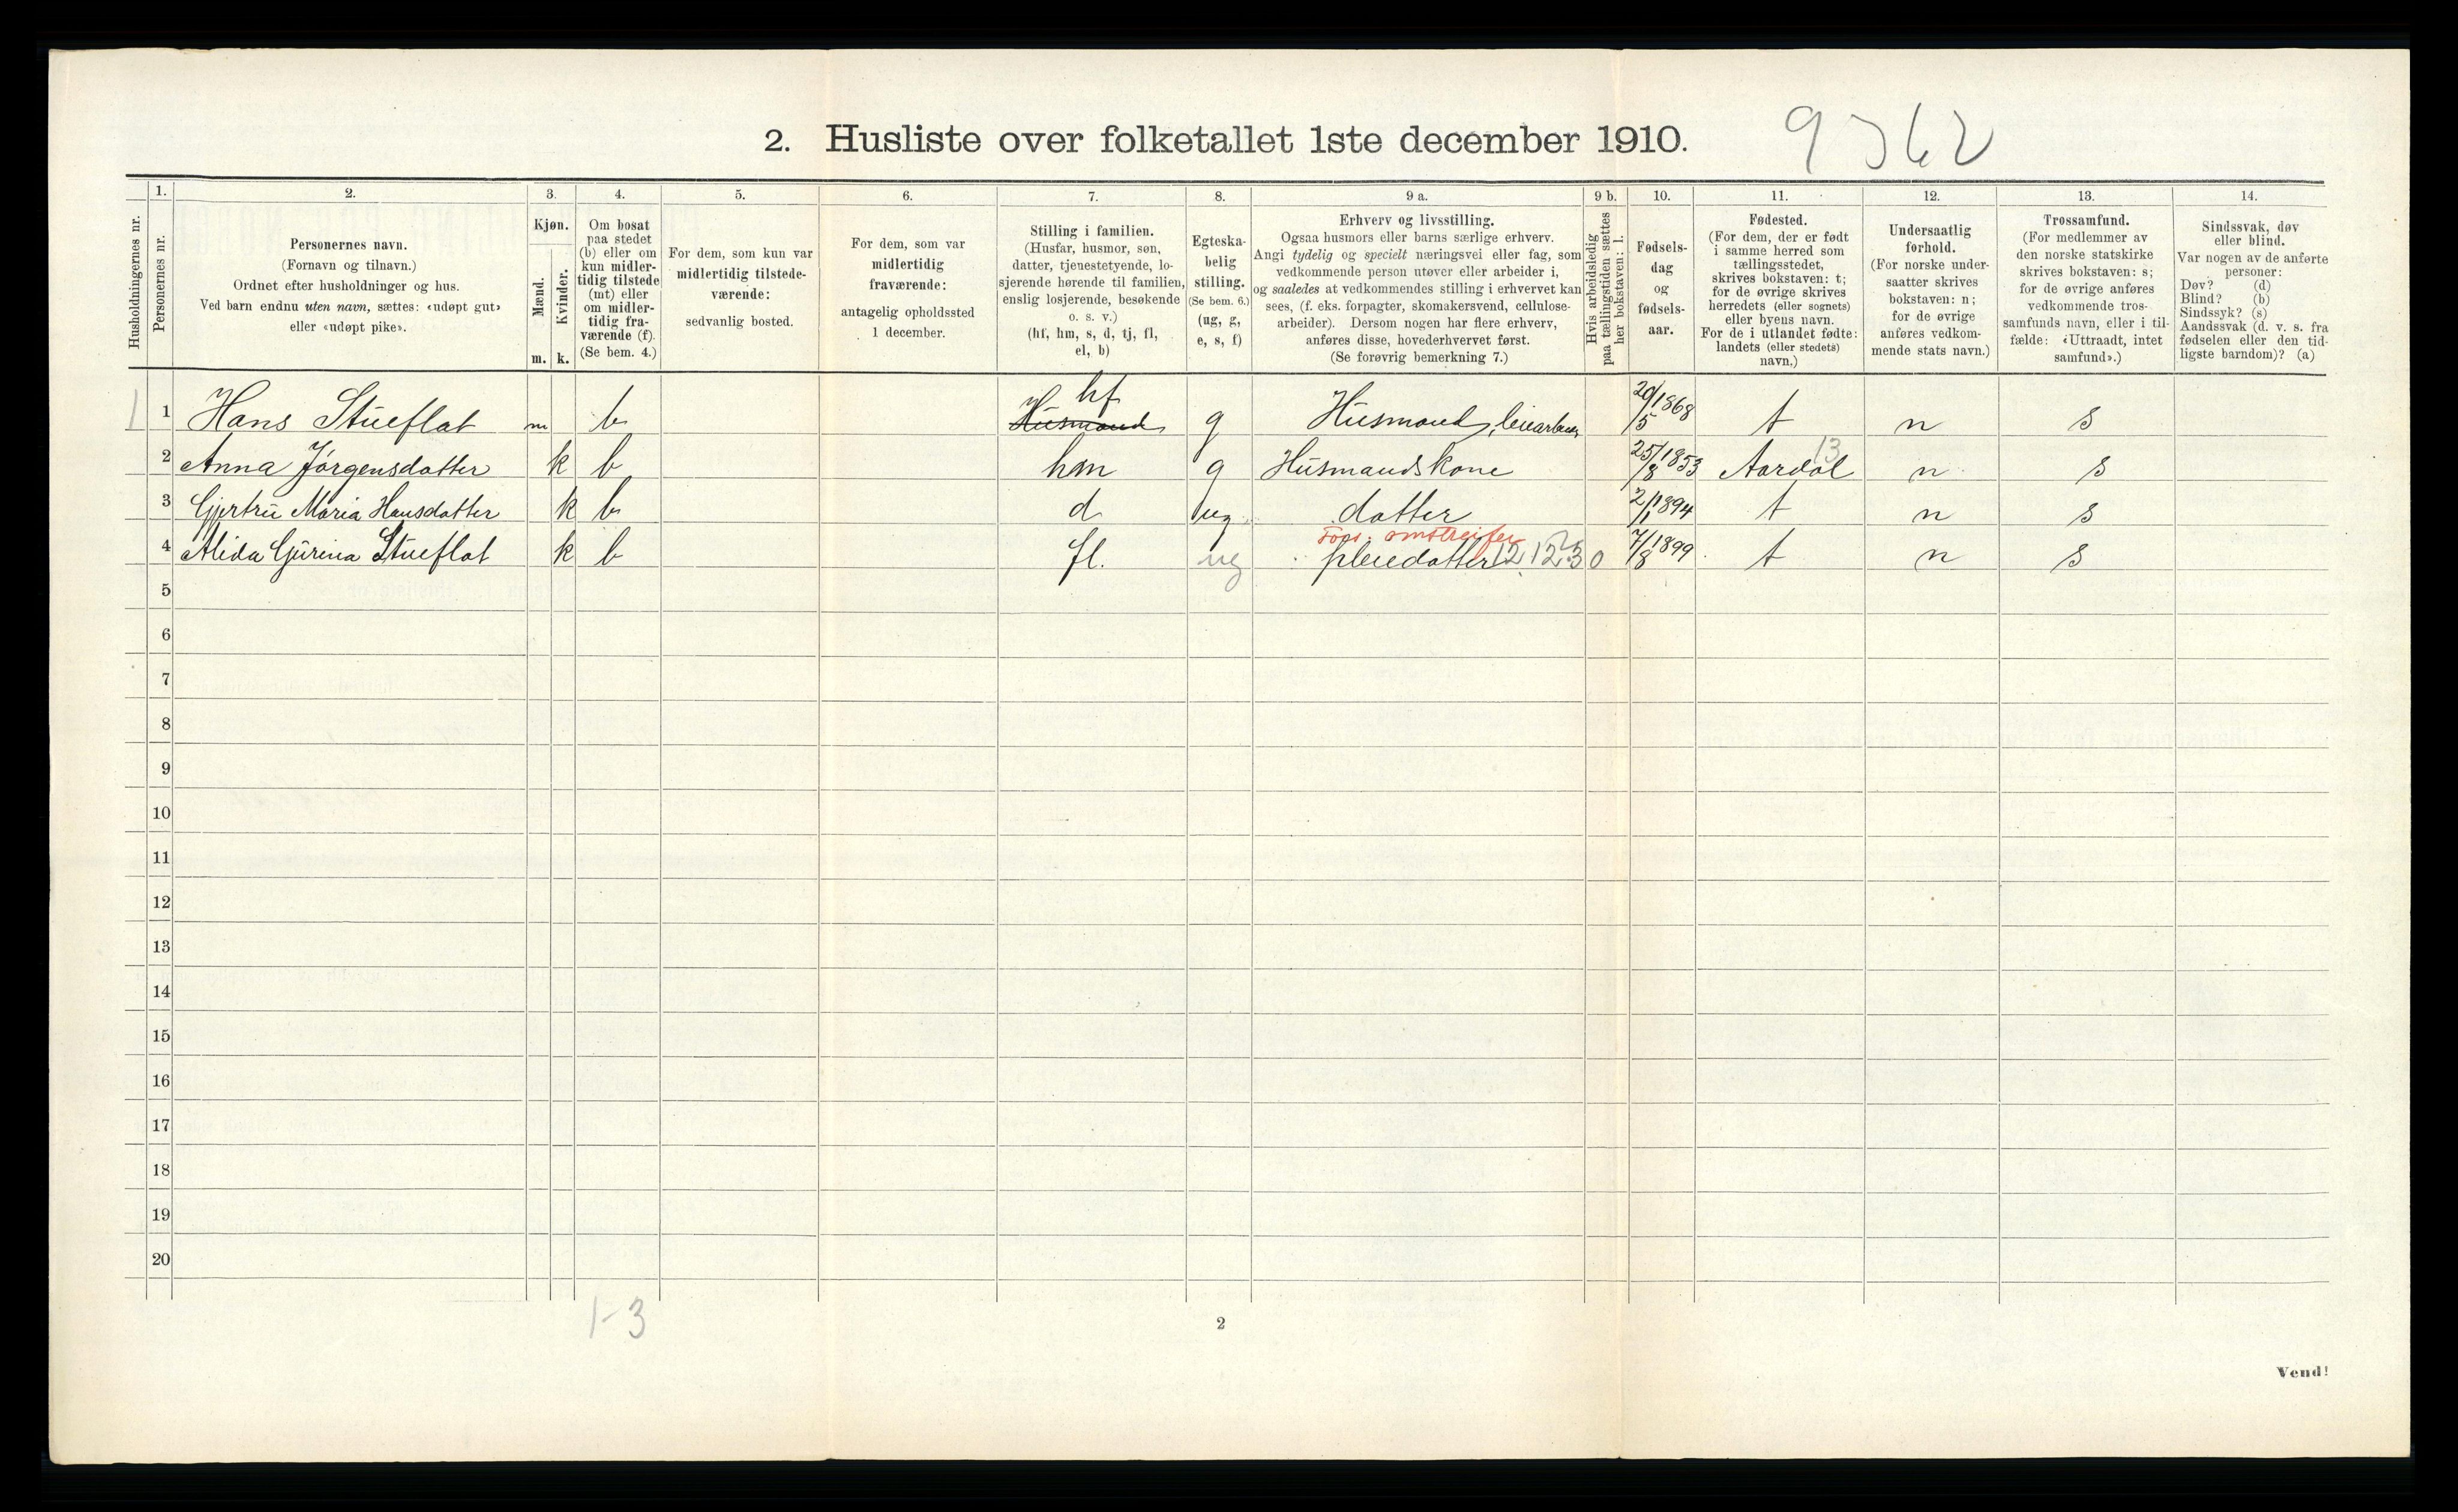 2. Husliste over folketallet 1ste december 1910.
9362
Husholdningernes nr.
1.
Personernes nr.
2.
Personernes navn.
(Fornavn og tilnavn.)
Ordnet efter husholdninger og hus.
Ved barn endnu uten navn, sættes: «udøpt gut»
eller «udøpt pike».
3.
Kjøn.
Mænd.
Kvinder.
m. k.
4.
Om bosat
paa stedet
(b) eller om
kun midler-
tidig tilstede
(mt) eller
om midler-
tidig fra-
værende (f).
(Se bem. 4.)
5.
For dem, som kun var
midlertidig tilstede-
værende:
sedvanlig bosted.
6.
For dem, som var
midlertidig
fraværende:
antagelig opholdssted
1 december.
7.
Stilling i familien.
(Husfar, husmor, søn,
datter, tjenestetyende, lo-
sjerende hørende til familien,
enslig losjerende, besøkende
o. s. v.)
(hf, hm, s, d, tj, fl,
el, b)
8.
Egteska-
belig
stilling.
(Se bem. 6.)
(ug, g,
e, s, f)
9 a.
Erhverv og livsstilling.
Ogsaa husmors eller barns særlige erhverv.
Angi tydelig og specielt næringsvei eller fag, som
vedkommende person utøver eller arbeider i,
og saaledes at vedkommendes stilling i erhvervet kan
sees, (f. eks. forpagter, skomakersvend, cellulose-
arbeider). Dersom nogen har flere erhverv,
anføres disse, hovederhvervet først.
(Se forøvrig bemerkning 7.)
9 b.
Hvis arbeidsledig
paa tællingstiden sættes
her bokstaven: l.
10.
Fødsels-
dag
og
fødsels-
aar.
11.
Fødested.
(For dem, der er født
i samme herred som
tællingsstedet,
skrives bokstaven: t;
for de øvrige skrives
herredets (eller sognets)
eller byens navn.
For de i utlandet fødte:
landets (eller stedets)
navn.)
12.
Undersaatlig
forhold.
(For norske under-
saatter skrives
bokstaven: n;
for de øvrige
anføres vedkom-
mende stats navn.)
13.
Trossamfund.
(For medlemmer av
den norske statskirke
skrives bokstaven: s;
for de øvrige anføres
vedkommende tros-
samfunds navn, eller i til-
fælde: «Uttraadt, intet
samfund».)
14.
Sindssvak, døv
eller blind.
Var nogen av de anførte
personer:
Døv? (d)
Blind? (b)
Sindssyk? (s)
Aandssvak (d. v. s. fra
fødselen eller den tid-
ligste barndom)? (a)
1 1 Hans Stueflat m b Husmand hf g Husmand, leiearbeid 20/5 1868 t n s
2 Anna Jørgensdatter k b hm g Husmandskone 25/8 1853 Aardal 13 n s
3 Gjertru Maria Hansdatter k b d ug datter 2/1 1894 t n s
4 Alida Gjurina Stueflat k b fl. ug pleiedatter Fors. omstreifer 7/8 1899 t n s
5
6
7
8
9
10
11
12
13
14
15
16
17
18
19
20
1-3
2
Vend!